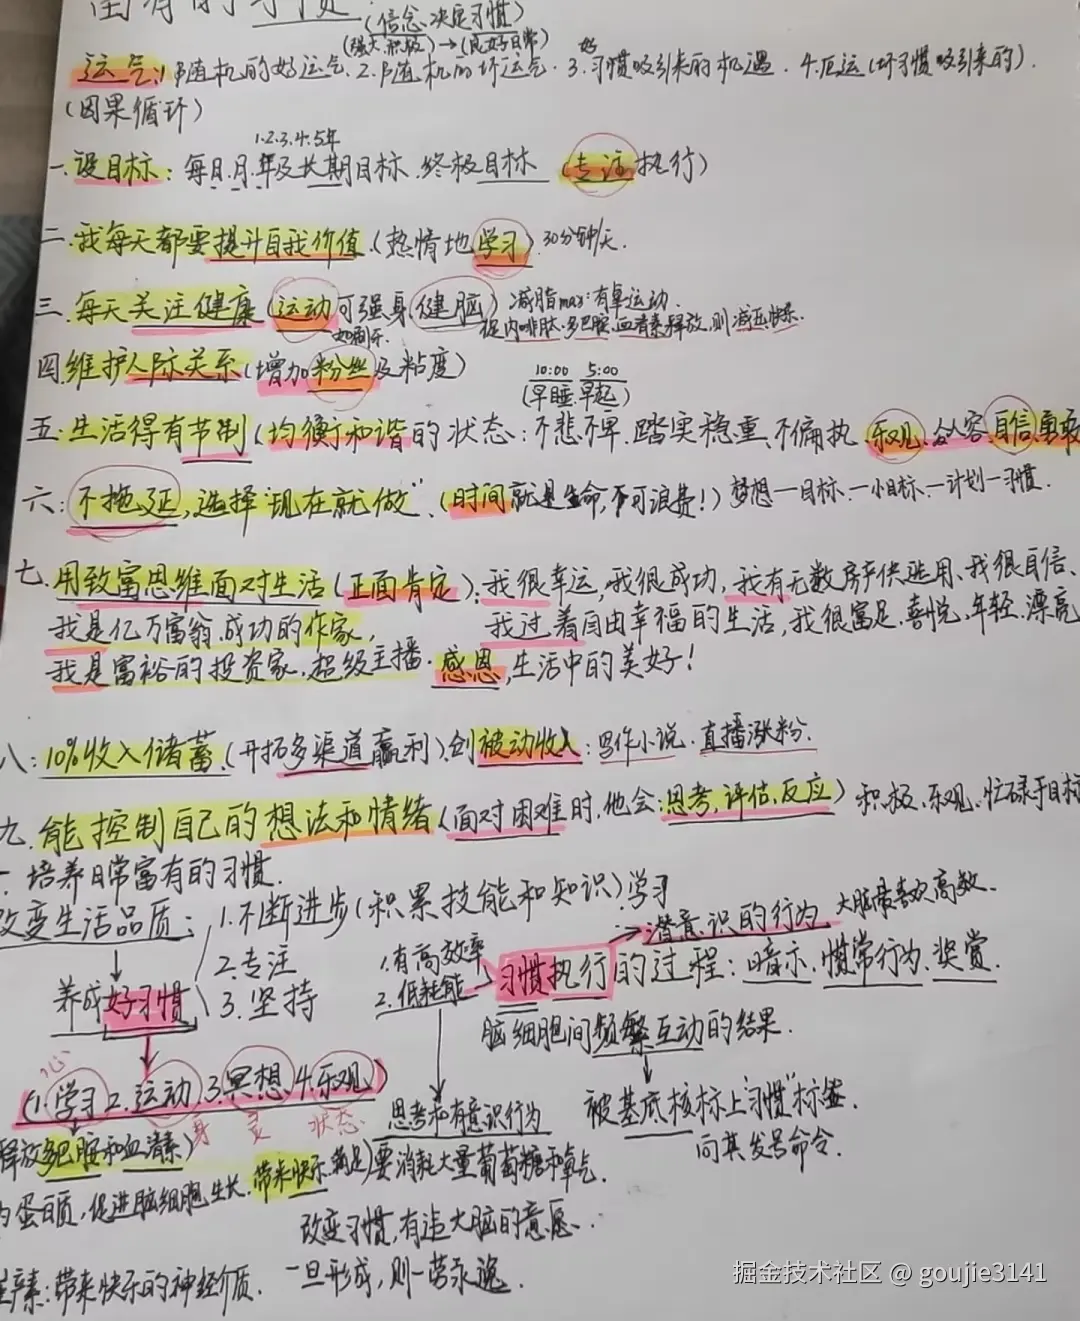 富有的习惯
(信念决定习惯)
(强大.积极)→(良好日常)
运气:1.随机的好运气.2.随机的坏运气.3.好习惯吸引来的机遇.4.厄运(坏习惯吸引来的).
(因果循环)
1.2.3.4.5年
一.设目标:每日.月.年及长期目标.终极目标(专注执行)
二.我每天都要提升自我价值(热情地学习)30分钟/天.
三.每天关注健康(运动可强身健脑)减脂max:有氧运动.
促内啡肽.多巴胺.血清素释放,则减压快乐.
四维护人际关系(增加粉丝及粘度)
10:00 5:00
(早睡.早起)
五.生活得有节制(均衡和谐的状态:不悲不卑.踏实稳重.不偏执.乐观.从容.自信.勇敢
六:不拖延,选择"现在就做"(时间就是生命,不可浪费!)梦想一目标.一小目标.一计划一习惯.
七.用致富思维面对生活(正面肯定):我很幸运,我很成功,我有无数房产供选用、我很自信、
我是亿万富翁.成功的作家, 我过着自由幸福的生活,我很富足.喜悦.年轻.漂亮
我是富裕的投资家.超级主播.感恩,生活中的美好!
八:10%收入储蓄(开拓多渠道赢利)创被动收入:写作小说.直播涨粉.
九.能控制自己的想法和情绪(面对困难时,他会:思考.评估.反应)积极、乐观、忙碌于目标
一.培养日常富有的习惯.
改变生活品质:1.不断进步(积累技能和知识)学习
2.专注
3.坚持
养成好习惯
1.有高效率
2.低耗能
潜意识的行为 大脑最喜欢高效.
习惯执行的过程:暗示.惯常行为.奖赏.
脑细胞间频繁互动的结果.
被基底核标上"习惯"标签.
向其发号命令.
心
(1.学习2.运动.3.冥想.4.乐观)
身 灵 状态
思考和有意识行为
释放多巴胺和血清素)
要消耗大量葡萄糖和氧气.
蛋白质,促进脑细胞生长.带来快乐.满足)
改变习惯,有违大脑的意愿..
一旦形成,则一劳永逸.
素:带来快乐的神经介质.
掘金技术社区 @ goujie3141